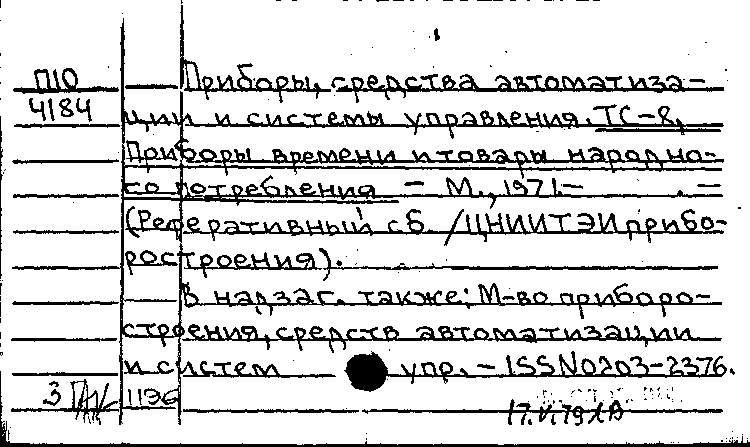 П10
4184
Приборы, средства автоматиза-
ции и системы управления. ТС-8,
Приборы времени и товары народно-
го потребления - М., 1971.- . -
(Реферативный сб. /ЦНИИТЭИ прибо-
ростроения).
В надзаг. также: М-во приборо-
строения, средств автоматизации
и систем упр. - ISSN0203-2376.
3
1196
17.V.79